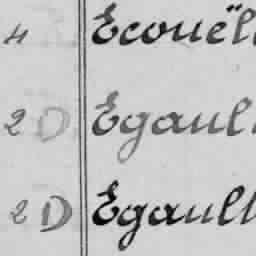 4 Ecouël
2 D Egaul
2 D Egault